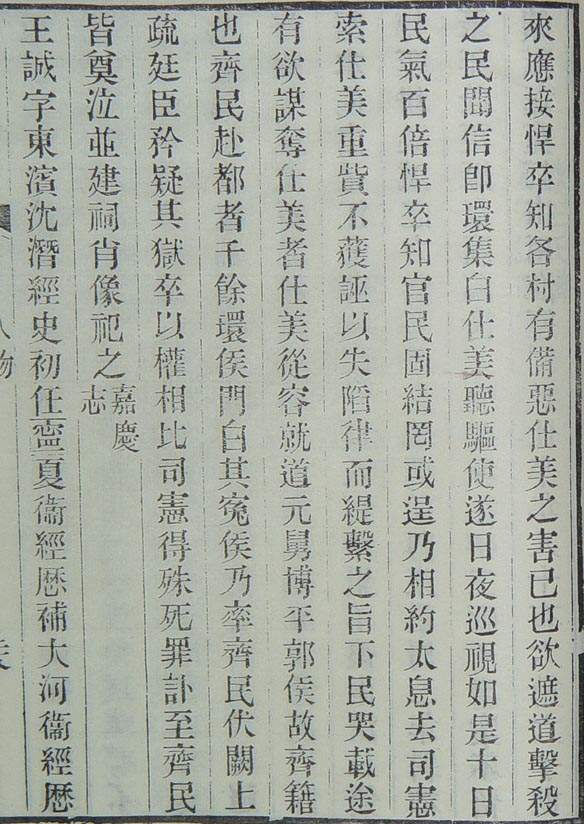 來應接悍卒知各村有備惡仕美之害已也欲遮道擊殺
之民聞信卽環集自仕美聽驅使遂日夜巡視如是十日
民氣百倍悍卒知官民固結罔或逞乃相約太息去司憲
索仕美重貲不獲誣以失陷律而緹繫之旨下民哭載途
有欲謀奪仕美者仕美從容就道元舅博平郭侯故齊籍
也齊民赴都者千餘環侯門白其寃侯乃率齊民伏闕上
疏廷臣矜疑其獄卒以權相比司憲得殊死罪訃至齊民
皆奠泣並建祠肖像祀之嘉慶志
王誠字東濱沈潛經史初任寧夏衞經厯補大河衞經厯
人物